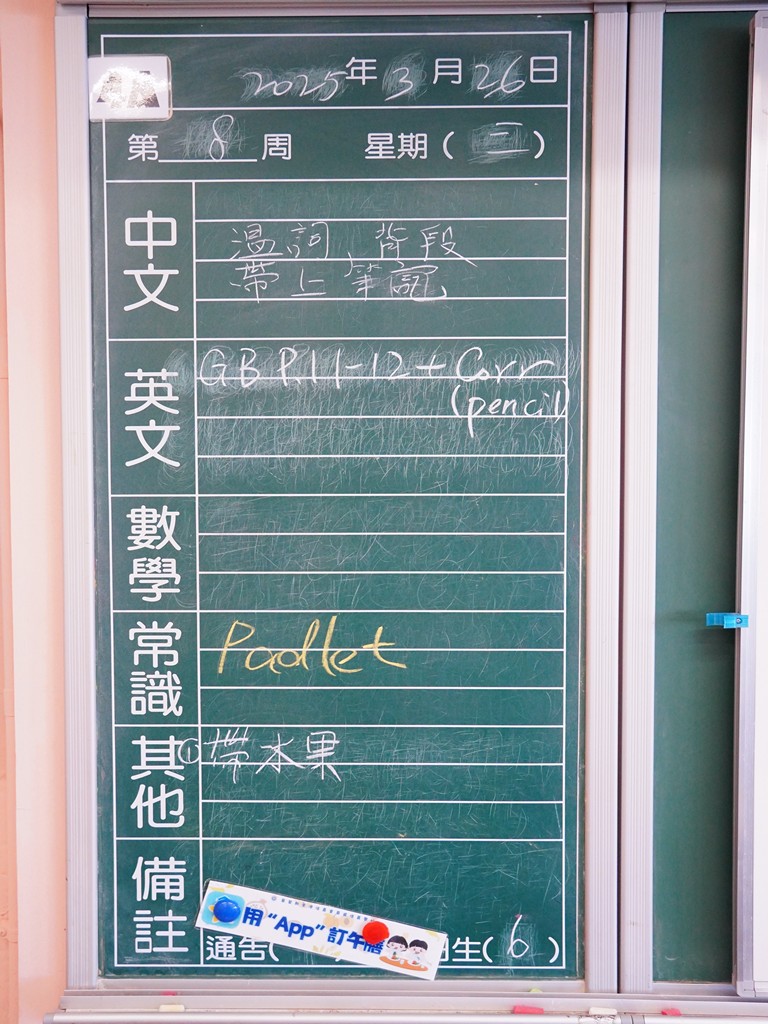 2025年3月26日
第8周 星期(二)
中文
溫詞、背段
帶上筆
英文
GB P.11-12 + Corr
(pencil)
數學
常識
Padlet
其他
①帶水果
備註
用“App”訂午膳
通告( 生(6)